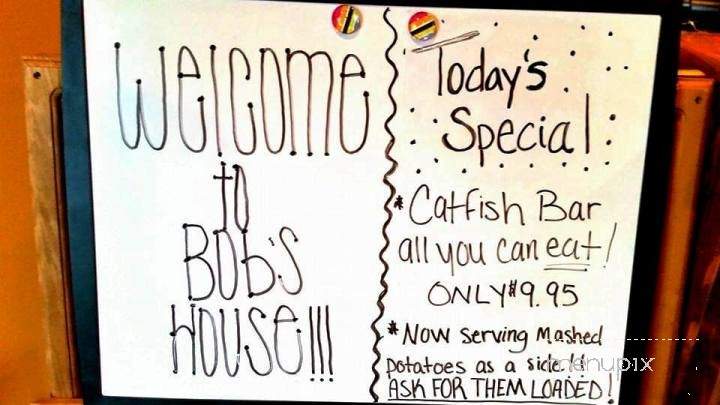 Welcome
to
Bob's
House!!!
Today's
Special
*Catfish Bar
all you can eat!
ONLY $9.95
*Now serving Mashed
potatoes as a side!!
ASK FOR THEM LOADED!
menupix